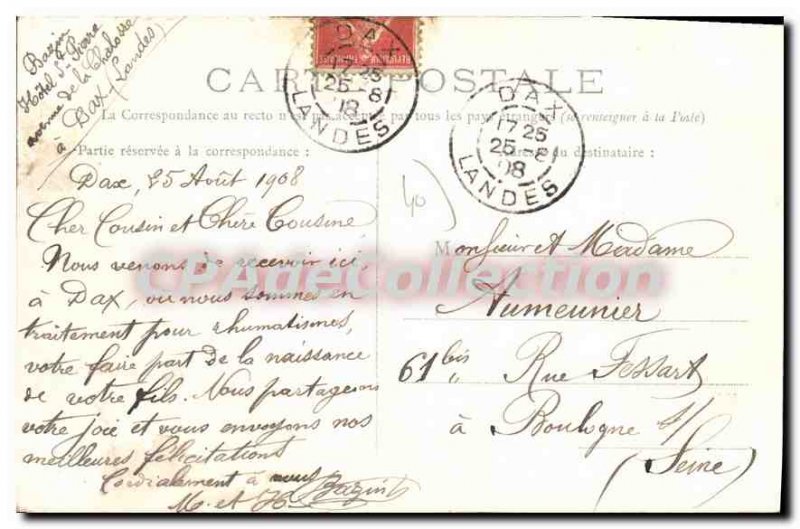 Bazin
Hôtel St Pierre
avenue de la Chalosse
à Dax (Landes)
CARTE POSTALE
DAX
17 25
25 -8
08
LANDES
DAX
17 25
25 -8
08
LANDES
La Correspondance au recto n'est pas acceptée par tous les pays étrangers (se renseigner à la Poste)
Partie réservée à la correspondance :
Adresse du destinataire :
Dax, 25 Août 1908
40
Cher Cousin et Chère Cousine
Nous venons de recevoir ici,
à Dax, où nous sommes en
traitement pour rhumatismes,
votre faire part de la naissance
de votre fils. Nous partageons
votre joie et vous envoyons nos
meilleures félicitations
Cordialement à vous
M. et Bazin
Monsieur et Madame
Aumeunier
61 bis Rue Fessart
à Boulogne s/
(Seine)
CPAdeCollection.com